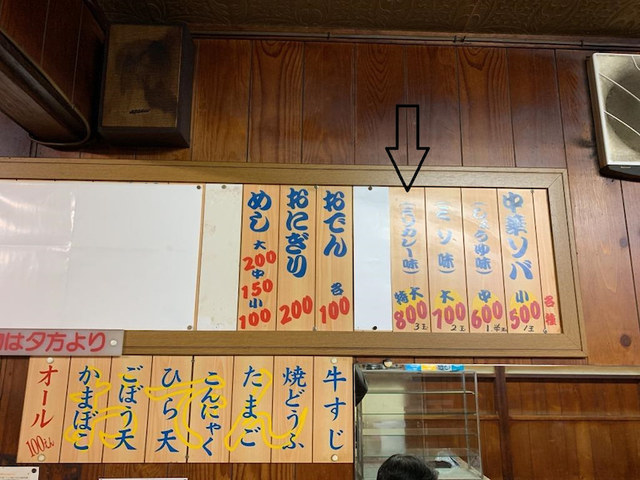 各種
中華ソバ 小 500 1玉
(しょうゆ味) 中 600
(ミソ味) 大 700 2玉
(ミソカレー味) 特大 800 3玉
おでん 各 100
おにぎり 200
めし 大 200 中 150 小 100
は夕方より
牛すじ
焼どうふ
たまご
こんにゃく
ひら天
ごぼう天
かまぼこ
オール 100